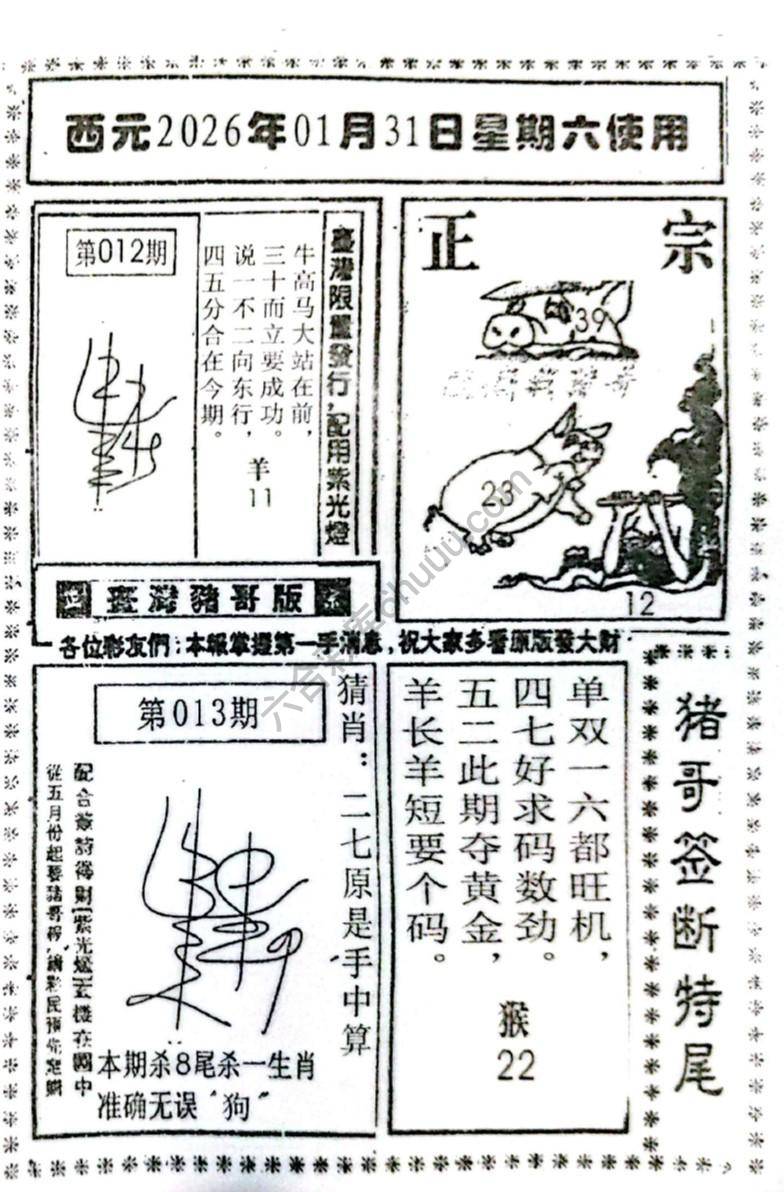 西元2026年01月31日星期六使用
第012期
牛高马大站在前，
三十而立要成功。
说一不二向东行，
四五分合在今期。
羊
11
臺灣限量發行，配用紫光燈
正宗
39
23
12
臺灣豬哥版
各位彩友們：本報掌握第一手消息，祝大家多看原版發大財
第013期
猜肖：二七原是手中算
從五月份起要豬哥
本期杀8尾杀一生肖
准确无误“狗”
单双一六都旺机，
四七好求码数劲。
五二此期夺黄金，
羊长羊短要个码。
猴
22
猪哥签断特尾
六合彩库6huuu.com